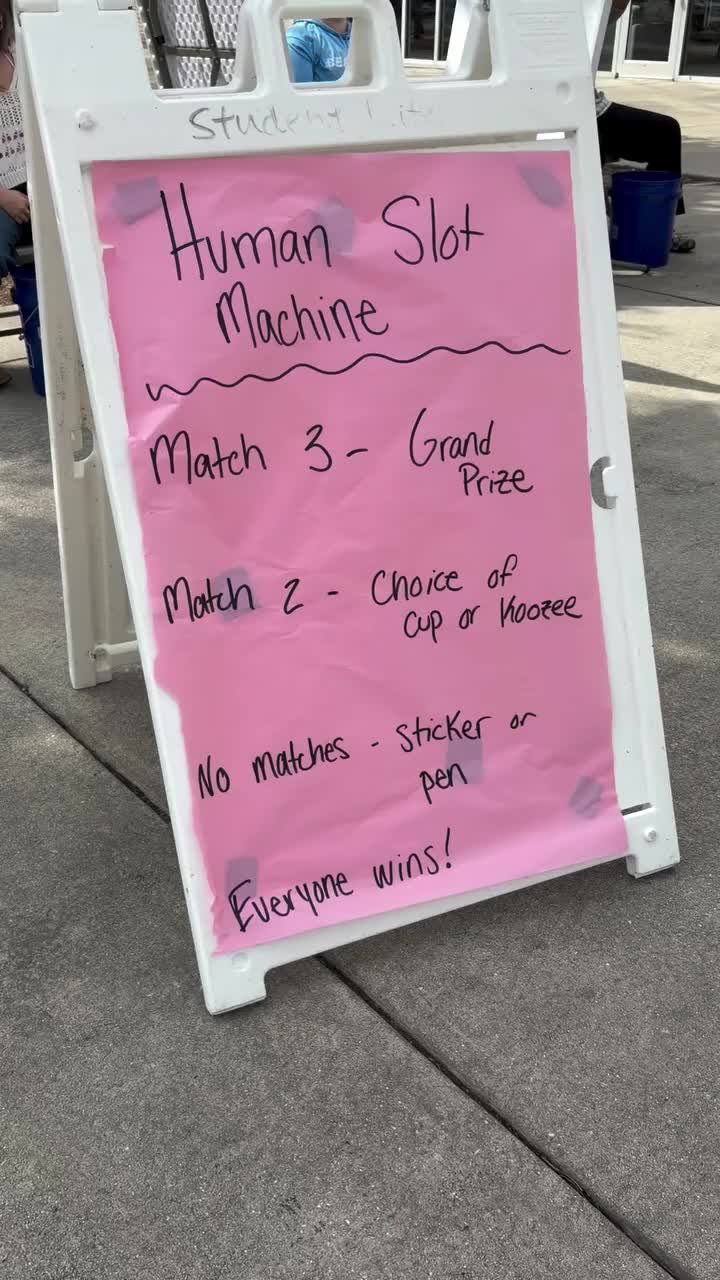 Student Life
Human Slot
Machine
Match 3 - Grand
Prize
Match 2 - Choice of
Cup or Koozee
No matches - sticker or
pen
Everyone wins!